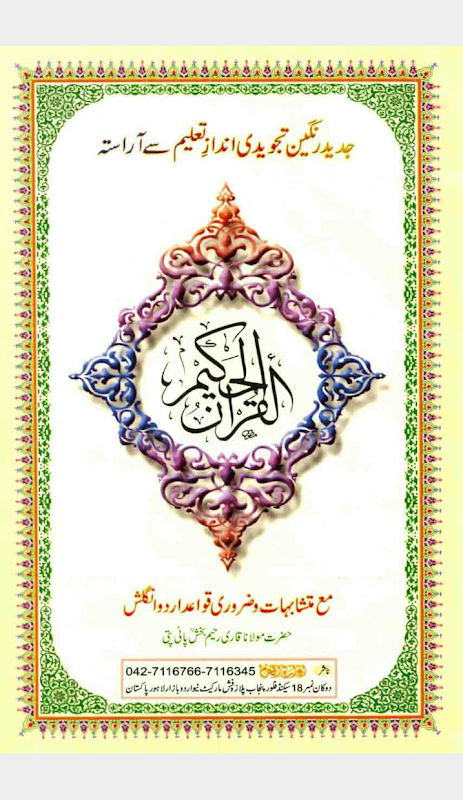 جدید رنگین تجویدی اندازِ تعلیم سے آراستہ
القرآن الحکیم
مع متشابہات و ضروری قواعد اردو انگلش
حضرت مولانا قاری رحیم بخش پانی پتی
ناشر 042-7116766-7116345
دوکان نمبر 18 سیکنڈ فلور پنجاب پلازہ فرش مارکیٹ نیو اردو بازار لاہور پاکستان